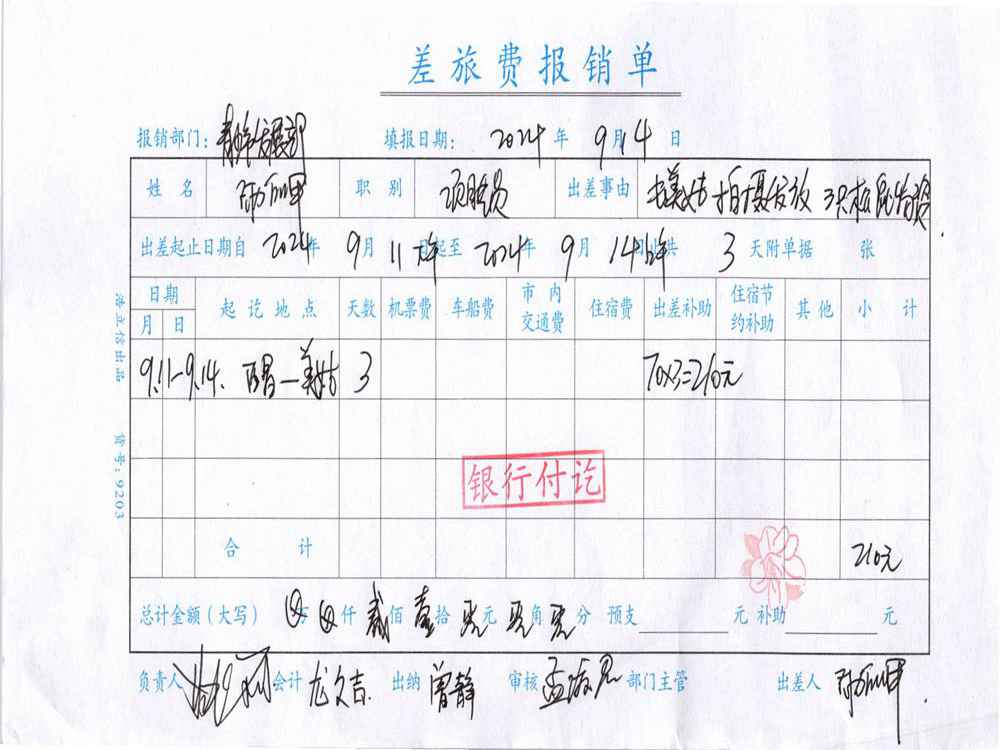 差旅费报销单
报销部门： 发展部 填报日期： 2024 年 9月14日
姓名 职别 项目员 出差事由 拍摄发放
出差起止日期自 2024年 9月 11 日起至 2024年 9月 14日 共 3 天附单据 张
日期 起讫地点 天数 机票费 车船费 市内交通费 住宿费 出差补助 住宿节约补助 其他 小计
月 日
9.11-9.14. 3 70x3=210元
银行付讫
合计 210元
总计金额（大写） ⊗万⊗仟贰佰壹拾零元零角零分 预支 元 补助 元
负责人 会计 龙久吉 出纳 曾静 审核 部门主管 出差人
货号：9203